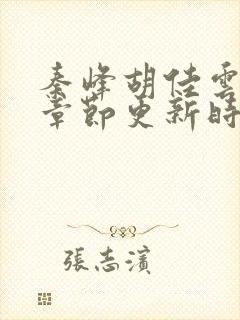 秦峰胡佳雲
章節更新時
張志濱